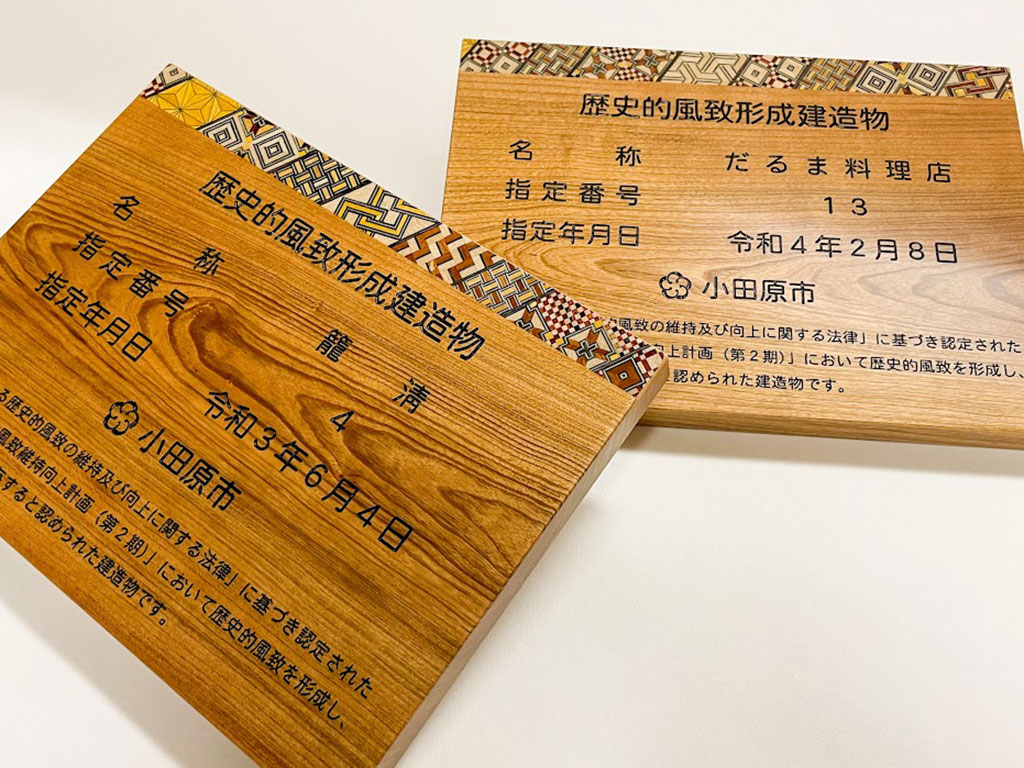 歴史的風致形成建造物
名称 籠淸
指定番号 4
指定年月日 令和3年6月4日
小田原市
る歴史的風致の維持及び向上に関する法律」に基づき認定された
風致維持向上計画（第2期）」において歴史的風致を形成し、
すると認められた建造物です。
歴史的風致形成建造物
名称 だるま料理店
指定番号 13
指定年月日 令和4年2月8日
小田原市
風致の維持及び向上に関する法律」に基づき認定された
向上計画（第2期）」において歴史的風致を形成し、
認められた建造物です。